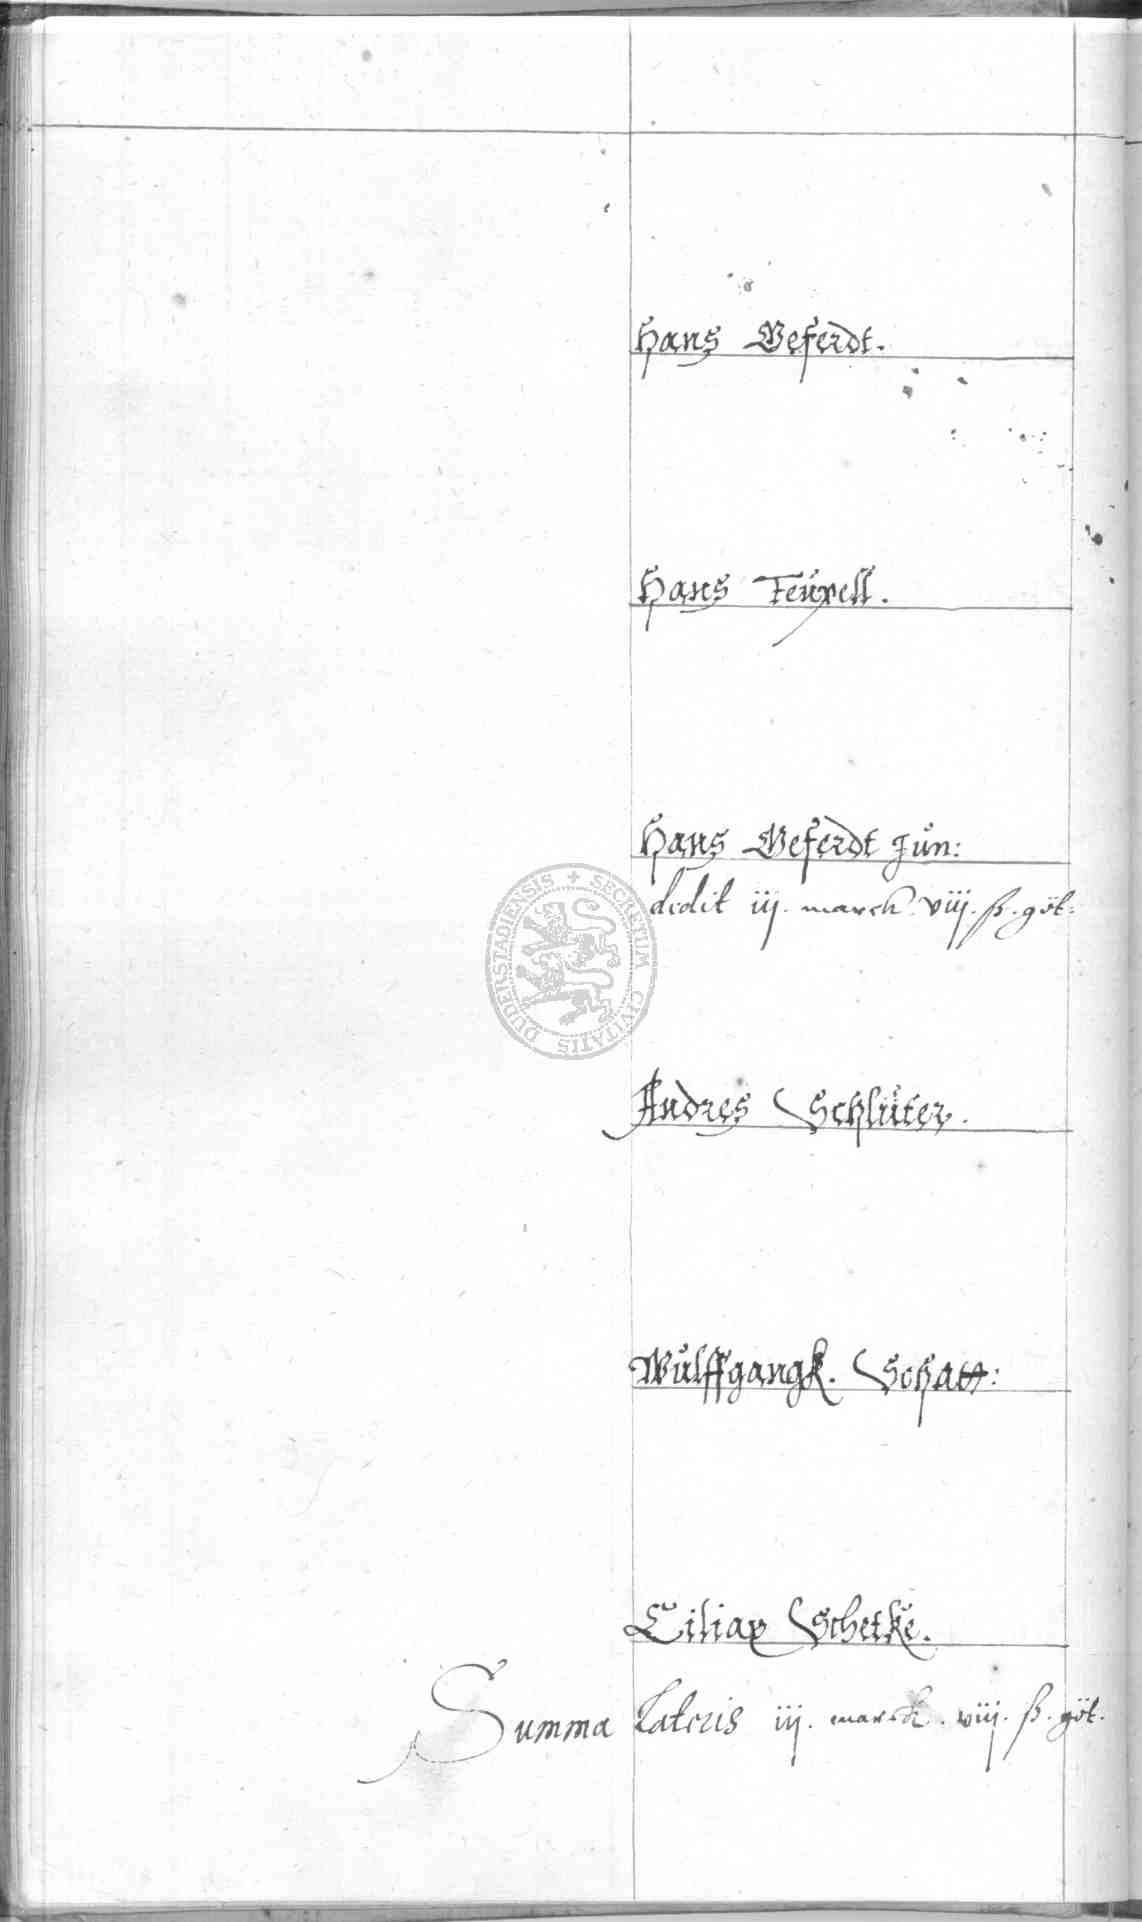 Hans Geferdt.
Hans Teüxell.
Hans Geferdt Jün:
dedit iij. marck. viij. ß. göt.
SECRETUM CIVITATIS DUDERSTADIENSIS
Andres Schlüter.
Wulffgangk. Schatt:
Ciliax Schetke.
Summa Lateris iij. marck. viij. ß. göt.